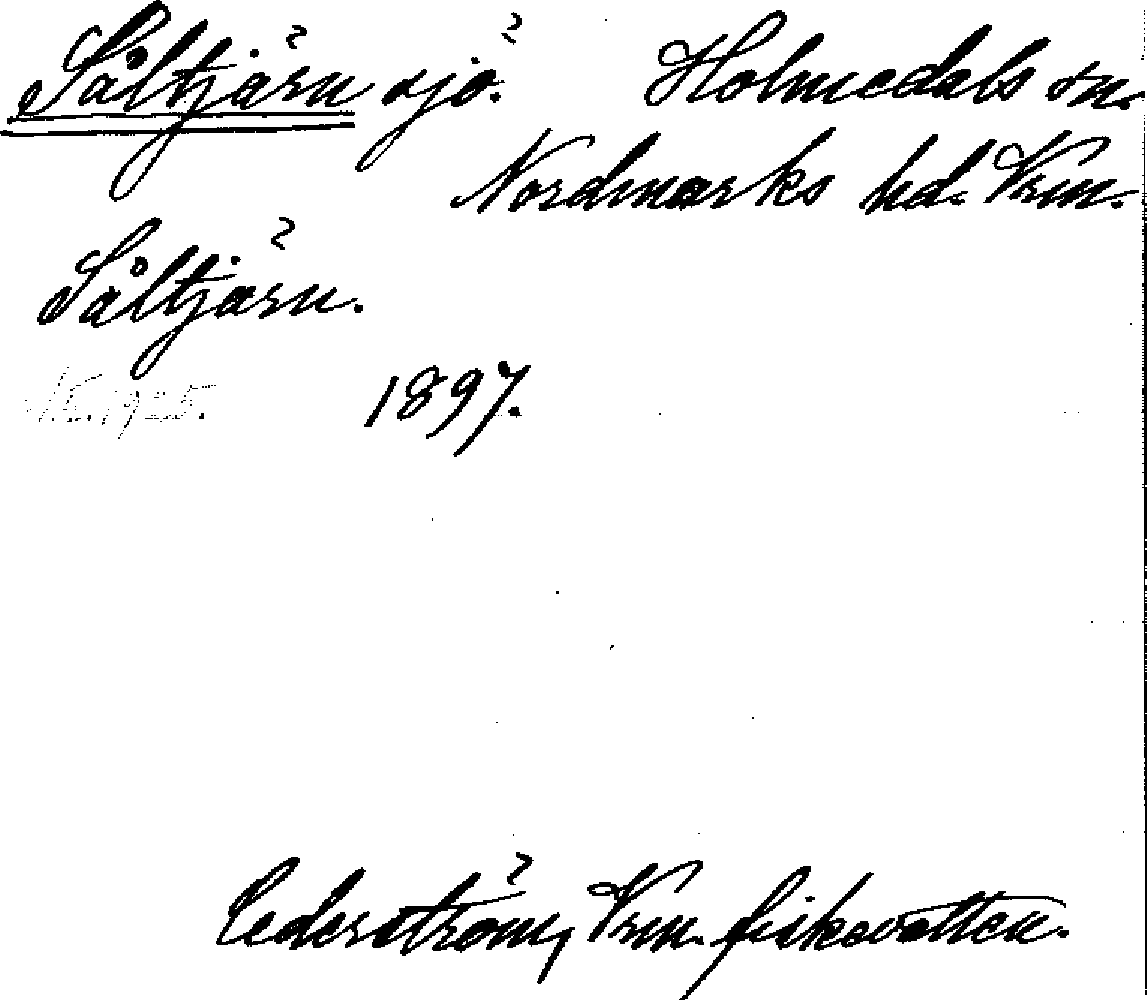 Såltjärn sjö. Holmedals sn.
Nordmarks hd. Vrm.
Såltjärn.
1897.
Cederström, Vrm. fiskevatten.